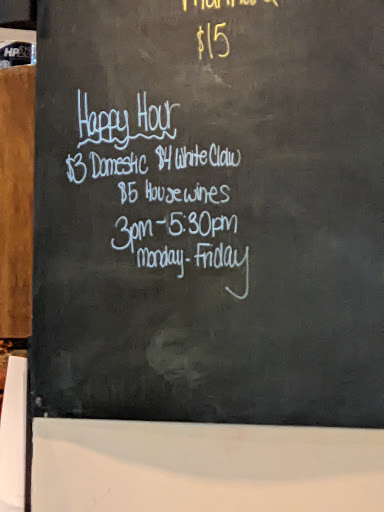 $15
Happy Hour
$3 Domestic $4 White Claw
$5 House wines
3pm - 5:30pm
monday - Friday